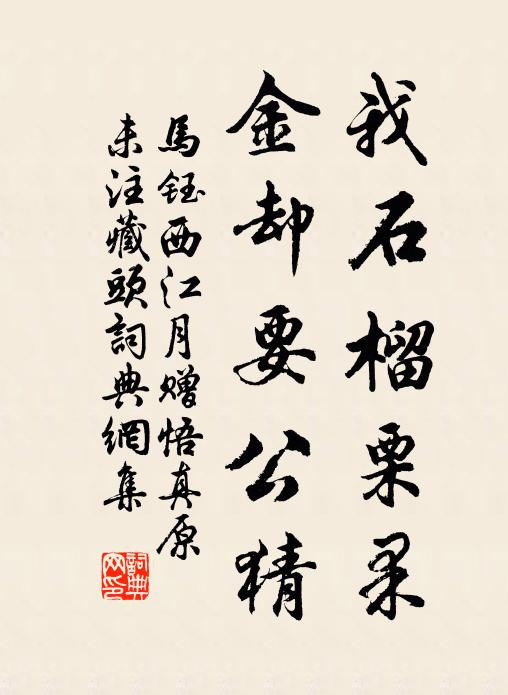 我石榴栗果
金却要公猜
馬鈺西江月赠悟真原
未注藏頭詞典網集
詞典網印